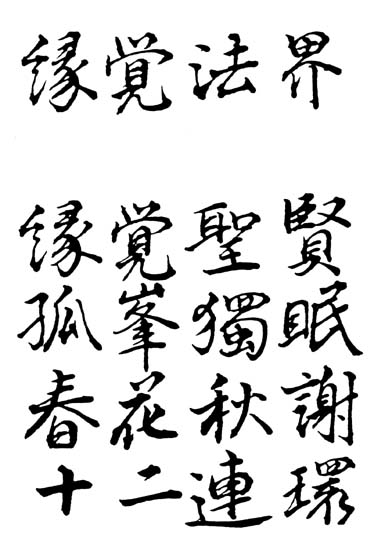 緣覺法界
緣覺聖賢
孤峯獨眠
春花秋謝
十二連環